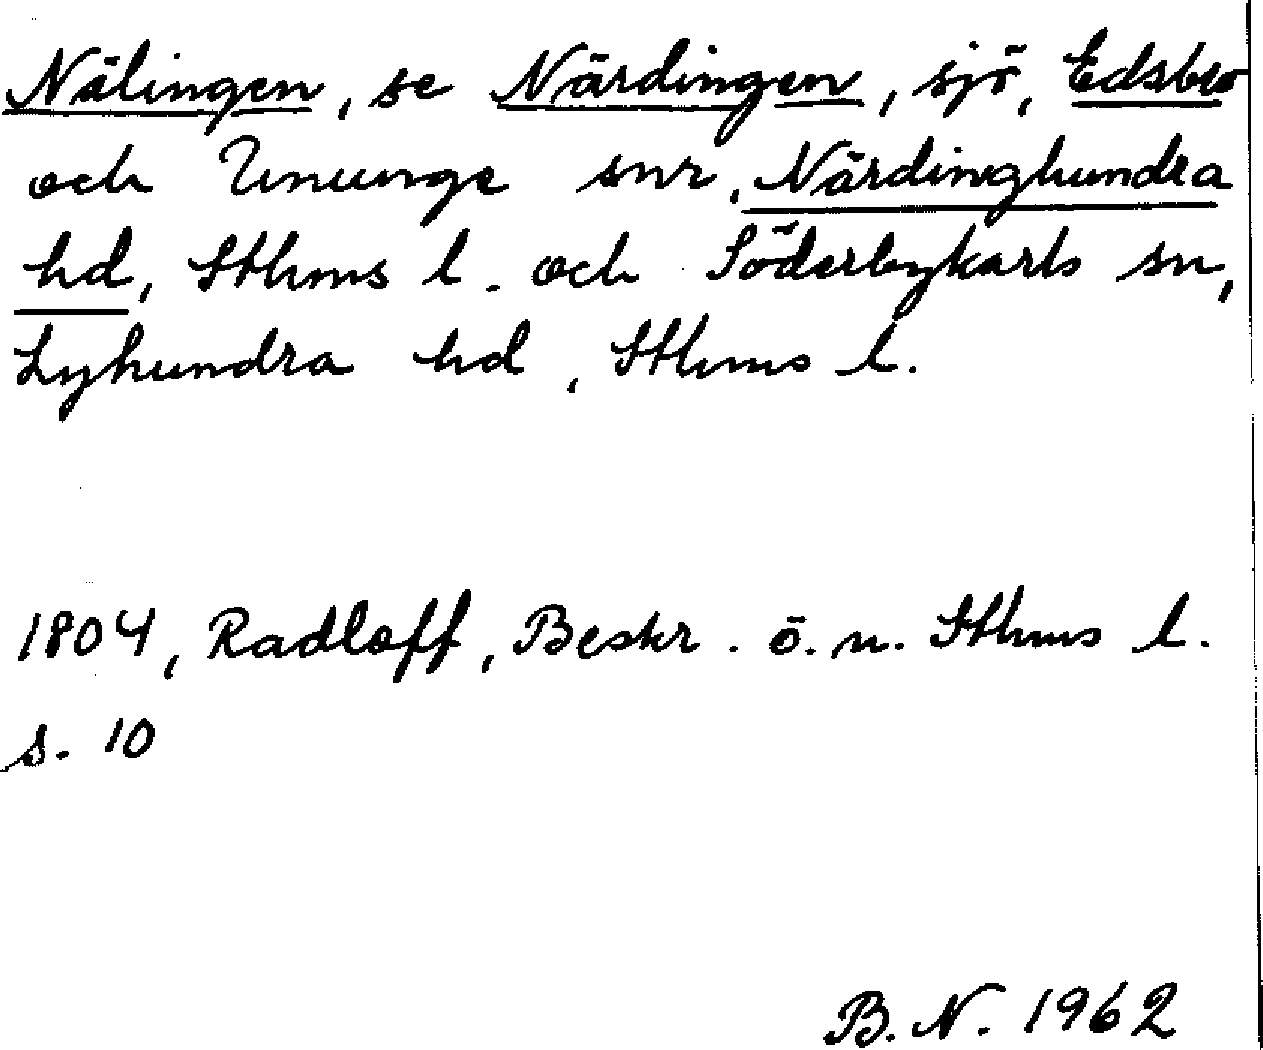 Nälingen, se Närdingen, sjö, Edsbro
och Ununge snr, Närdinghundra
hd, Sthms l. och Söderbykarls sn,
Lyhundra hd, Sthms l.
1804, Radloff, Beskr. ö. n. Sthms l.
s. 10
B.N. 1962